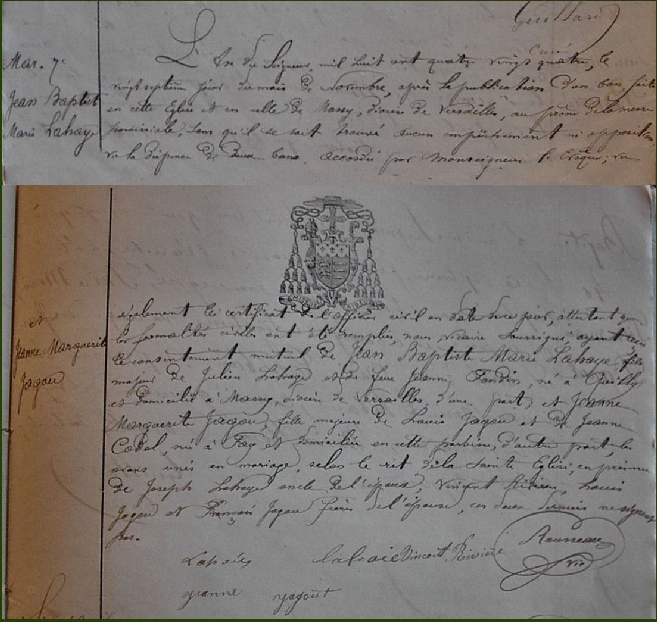 Guillard
Mar. 7e
Jean Baptist
Marie Lahaye
L'An du Seigneur, mil huit cent quatre vingt quatre, le
vingt septième jour du mois de Novembre, après la publication d'un ban faite
en cette Eglise et en celle de Massy, diocèse de Versailles, au prône de la messe
paroissiale, sans qu'il se soit trouvé aucun empêchement ni opposition
vu la dispense de deux bans, accordée par Monseigneur l'Evêque, vu
et
Jeanne Marguerite
Jagou
également le certificat de l'officier civil en date de ce jour, attestant que
les formalités civiles ont été remplies, nous vicaire soussigné ayant reçu
le consentement mutuel de Jean Baptist Marie Lahaye, fils
majeur de Julien Lahaye et de feue Jeanne né à Quilly
et domicilié à Massy, diocèse de Versailles, d'une part; et Jeanne
Marguerite Jagou, fille majeure de Louis Jagou et de Jeanne
née à Fay et domiciliée en cette paroisse, d'autre part, les
avons unis en mariage, selon le rit de la Sainte Eglise, en présence
de Joseph Lahaye oncle de l'époux, Vincent Rivière, Louis
Jagou et François Jagou frères de l'épouse, ces deux derniers ne signent
pas.
Lahaie Vincent Rivière Rousseau
vic